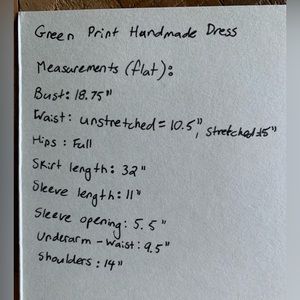 Green Print Handmade Dress
Measurements (flat):
Bust: 18.75"
Waist: unstretched = 10.5", stretched=15"
Hips: Full
Skirt length: 32"
Sleeve length: 11"
Sleeve opening: 5.5"
Underarm - Waist: 9.5"
Shoulders: 14"